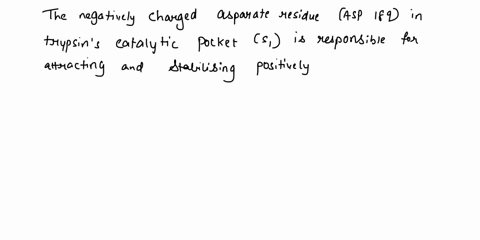 The negatively charged asparate residue (ASP 189) in
trypsin's catalytic pocket (S1) is responsible for
attracting and stabilising positively